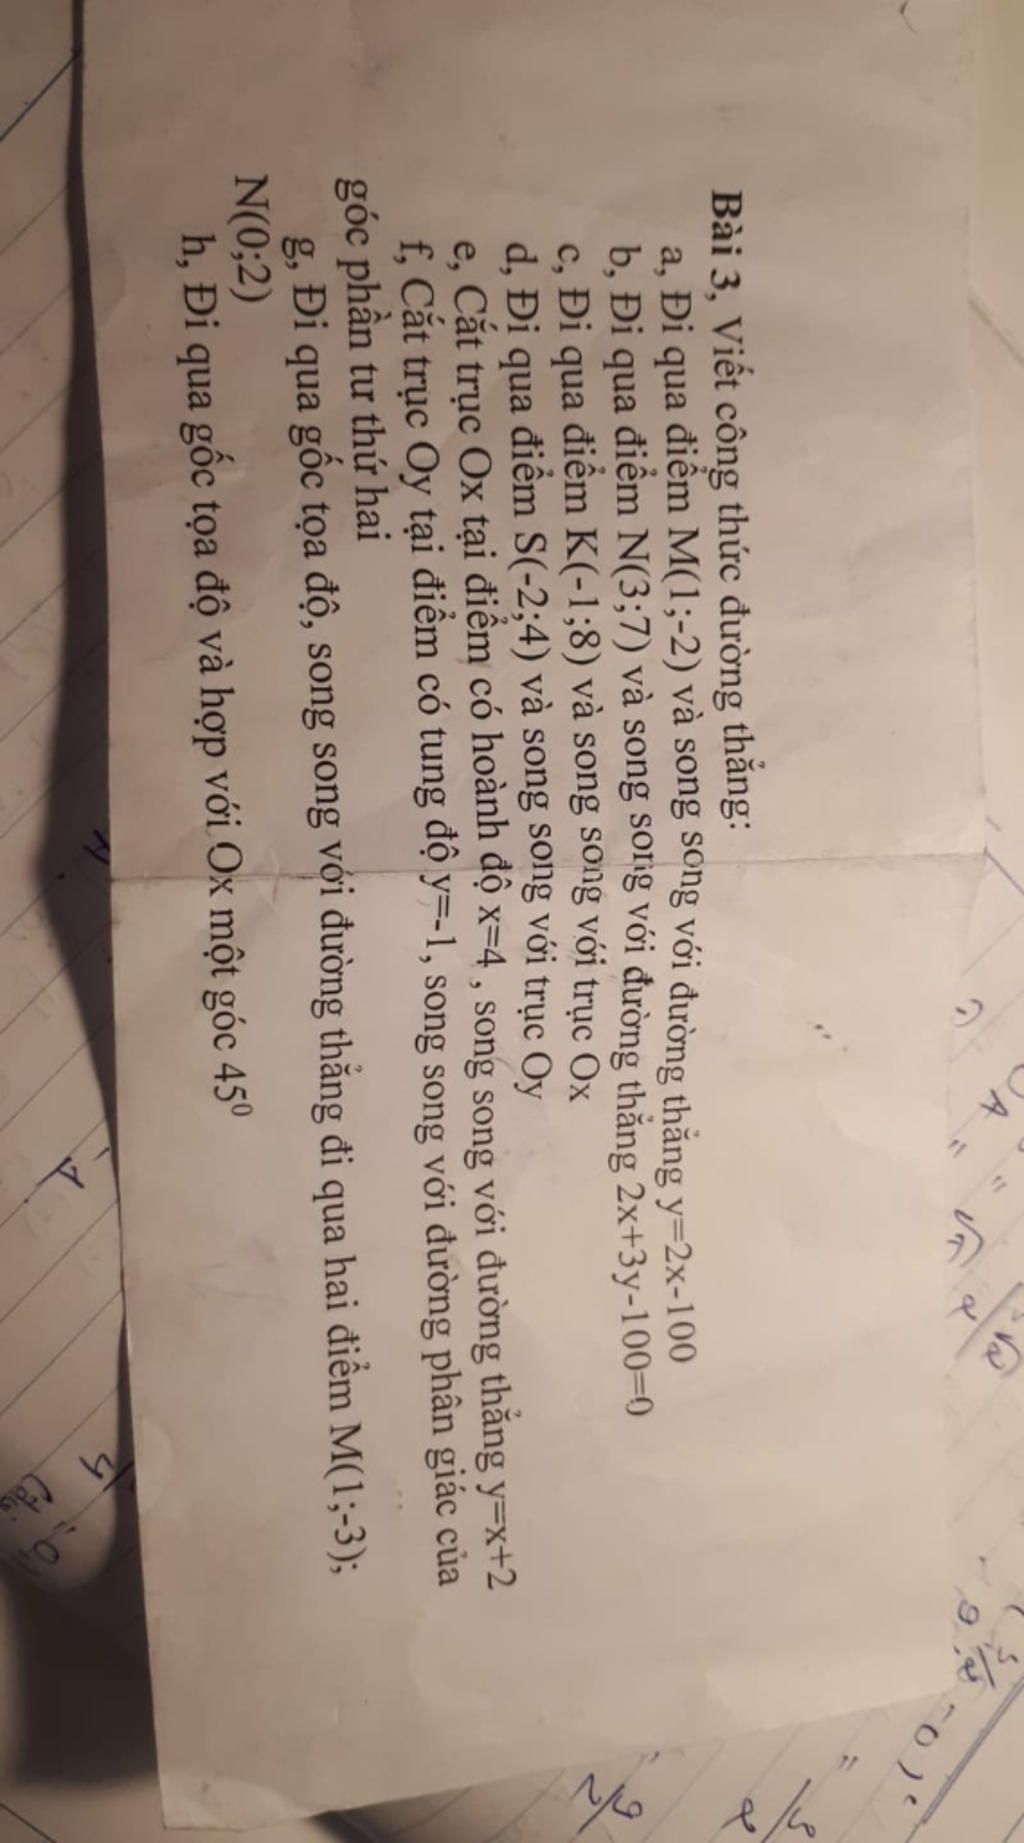 Bài 3, Viết công thức đường thẳng:
a, Đi qua điểm M(1;-2) và song song với đường thẳng y=2x-100
b, Đi qua điểm N(3;7) và song song với đường thẳng 2x+3y-100=0
c, Đi qua điểm K(-1;8) và song song với trục Ox
d, Đi qua điểm S(-2;4) và song song với trục Oy
e, Cắt trục Ox tại điểm có hoành độ x=4 , song song với đường thẳng y=x+2
f, Cắt trục Oy tại điểm có tung độ y=-1, song song với đường phân giác của
góc phần tư thứ hai
g, Đi qua gốc tọa độ, song song với đường thẳng đi qua hai điểm M(1;-3);
N(0;2)
h, Đi qua gốc tọa độ và hợp với Ox một góc 45⁰